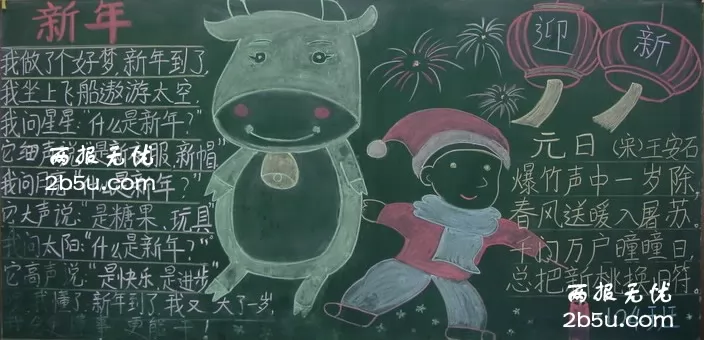 新年
我做了个好梦,新年到了,
我坐上飞船遨游太空.
我问星星:"什么是新年?"
它细声 服、新帽"
两报无忧
2b5u.com
我问 是新年?"
它大声说:"是糖果、玩具"
我问太阳:"什么是新年?"
它高声说:"是快乐,是进步"
我懂了,新年到了,我又 大了一岁,
更能干!
迎新
元日 (宋)王安石
爆竹声中一岁除,
春风送暖入屠苏.
千门万户曈曈日,
总把新桃换旧符.
两报无忧
2b5u.com
班